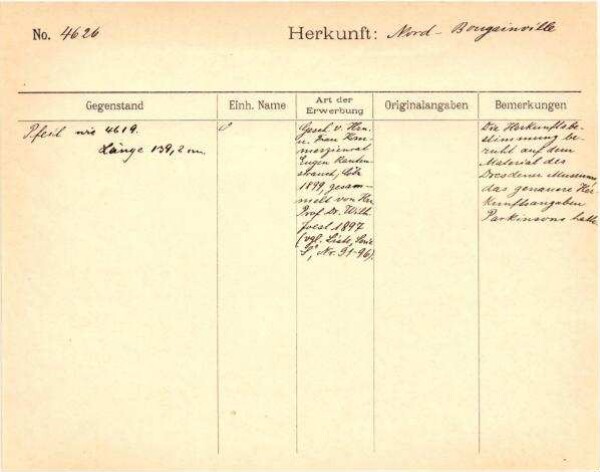 No. 4626
Herkunft: Nord-Bougainville
Gegenstand
Einh. Name
Art der
Erwerbung
Originalangaben
Bemerkungen
Pfeil wie 4619.
Länge 139,2 cm.
Gesch. v. Hrn.
u. Frau Kom-
merzienrat
Eugen Rauten-
strauch, Cöln
1899, gesam-
melt von Hrn
Prof. Dr. Wilh.
Joest 1897
(vgl. Liste, Serie
Nr. 91-96).
Die Herkunftsbe-
stimmung be-
ruht auf dem
Material des
Dresdener Museums,
das genauere Her-
kunftsangaben
Parkinsons hatte.